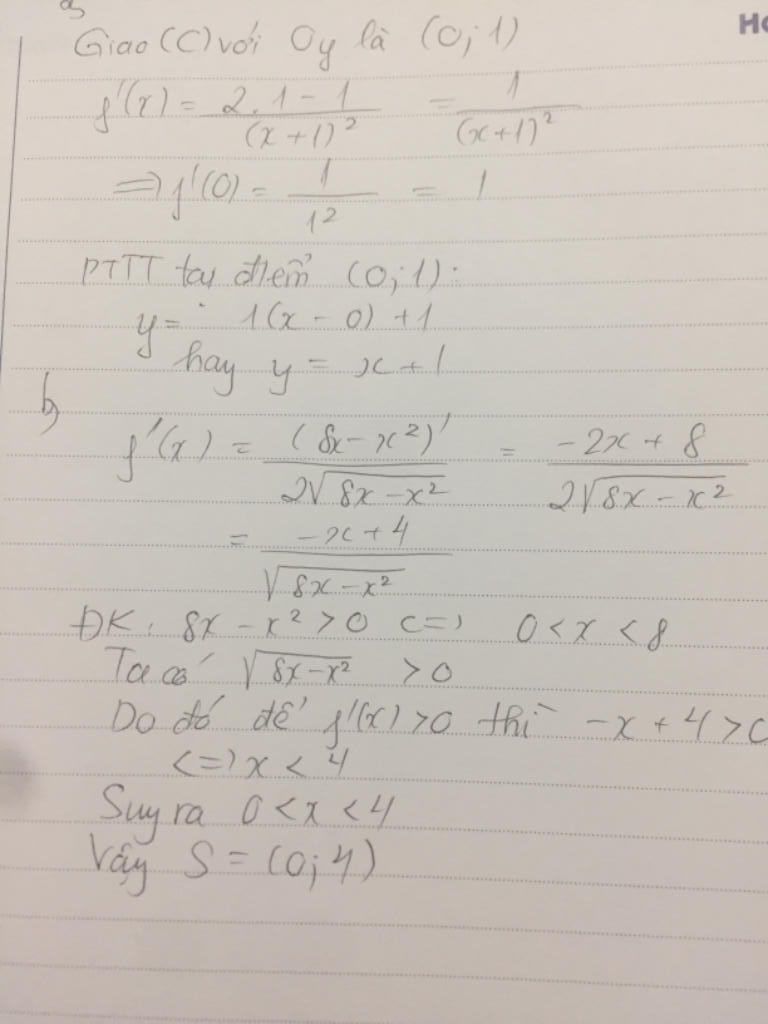 a,
Giao (C) với Oy là (0;1)
f'(x) = 2.1-1/(x+1)² = 1/(x+1)²
=> f'(0) = 1/1² = 1
PTTT tại điểm (0;1):
y = 1(x - 0) + 1
hay y = x + 1
b,
f'(x) = (8x-x²)'/2√(8x-x²) = -2x+8/2√(8x-x²)
= -x+4/√(8x-x²)
ĐK: 8x - x² > 0 <=> 0 < x < 8
Ta có √(8x-x²) > 0
Do đó để f'(x) > 0 thì -x + 4 > 0
<=> x < 4
Suy ra 0 < x < 4
Vậy S = (0;4)